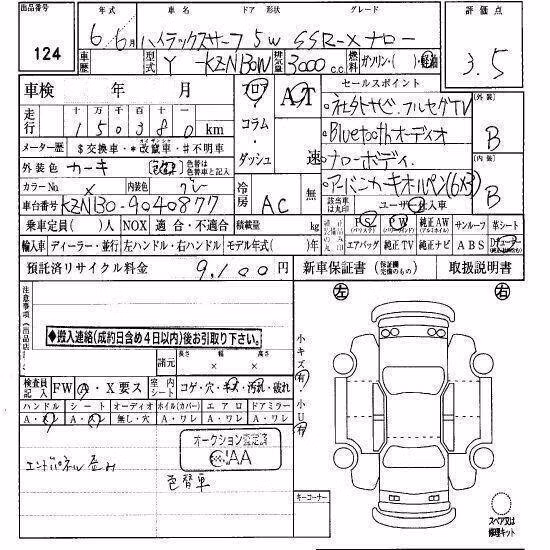 出品番号
124
年式
6年 6月
車名
ハイラックスサーフ
ドア 形状
5W
グレード
SSR-X ナロー
評価点
3.5
車歴
型式
Y-KZN130W
排気量
3000c.c.
燃料
ガソリン・( )・軽油
車検 年 月
走行
十 万 千 百 十 一
150380km
メーター歴
$交換車・*改竄車・#不明車
外装色
カーキ
色替は色替車と記入
カラーNo
内装色
グレー
車台番号
KZN130-9040877
フロア・コラム・ダッシュ
AT
速
冷房
AC
無
セールスポイント
・社外ナビ.フルセグTV
・Bluetoothオーディオ
・ナローボディ.
・アーバンカーキオールペン(6X3)
該当車は丸印
ユーザー・仕入車
外装
B
内装
B
乗車定員( )人
NOX 適合・不適合
積載量 kg
輸入車
ディーラー・並行
左ハンドル・右ハンドル
モデル年式( )年
PS
(パワステ)
PW
(パワーウィンド)
純正AW
(アルミホイル)
サンルーフ
革シート
エアバッグ
純正TV
純正ナビ
ABS
預託済リサイクル料金
9,100円
新車保証書(保証書 記録簿 完備のもの)
取扱説明書
注意事項(出品店)
◆搬入連絡(成約日含め4日以内)後お引取り下さい。
諸元
長さ × 幅 × 高さ
検査員記入
FW・A・X要ス
室内シート
コゲ・穴・キズ・汚れ・破れ
ハンドル
シート
オーディオ
ホイル(カバー)
エアロ
ドアミラー
A・ワレ
エンドパネル歪み
色替車
オークション鑑定済
JAA
小キズ有・小U有
キーコーナー
左
右
スペア又は修理キット